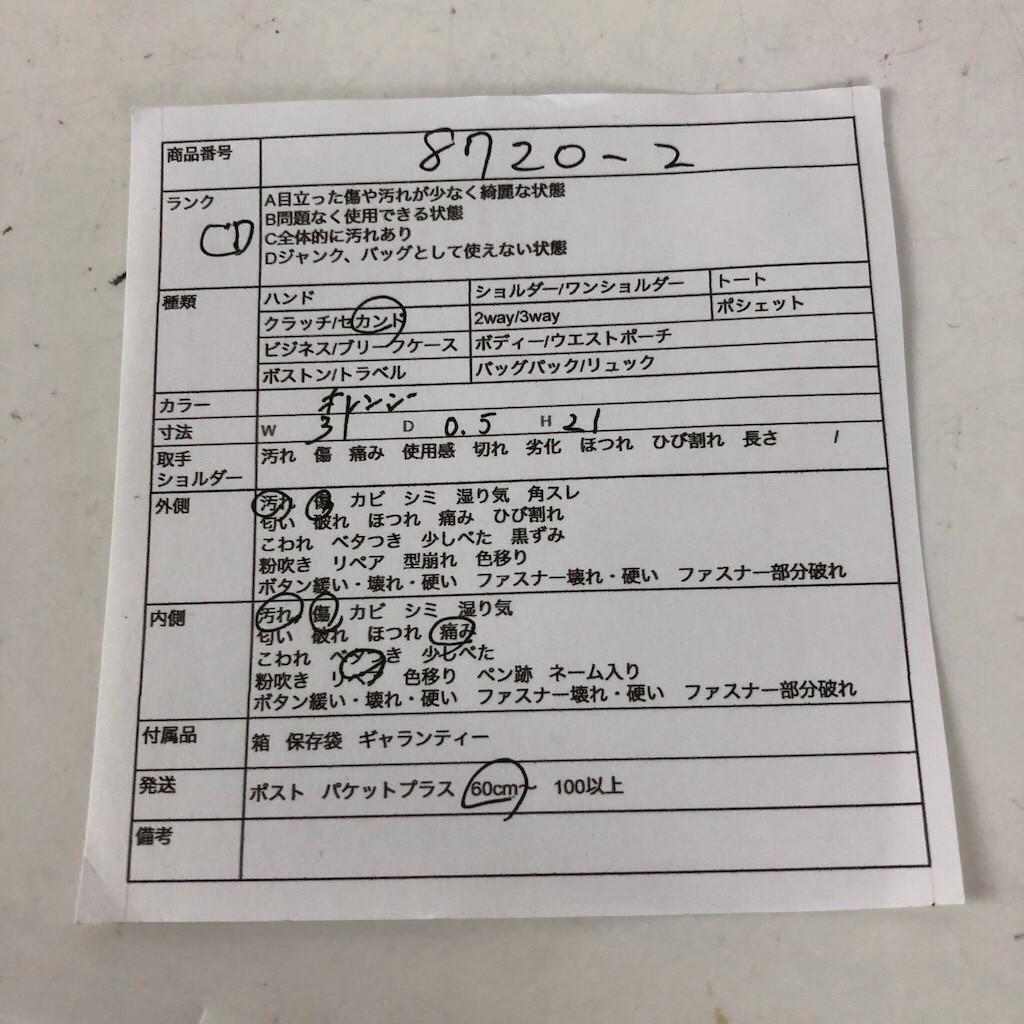 商品番号 8720-2
ランク CD
A目立った傷や汚れが少なく綺麗な状態
B問題なく使用できる状態
C全体的に汚れあり
Dジャンク、バッグとして使えない状態
種類
ハンド ショルダー/ワンショルダー トート
クラッチ/セカンド 2way/3way ポシェット
ビジネス/ブリーフケース ボディー/ウエストポーチ
ボストン/トラベル バッグパック/リュック
カラー オレンジ
寸法 W 31 D 0.5 H 21
取手 汚れ 傷 痛み 使用感 切れ 劣化 ほつれ ひび割れ 長さ /
ショルダー
外側 汚れ 傷 カビ シミ 湿り気 角スレ
匂い 破れ ほつれ 痛み ひび割れ
こわれ ベタつき 少しべた 黒ずみ
粉吹き リペア 型崩れ 色移り
ボタン緩い・壊れ・硬い ファスナー壊れ・硬い ファスナー部分破れ
内側 汚れ 傷 カビ シミ 湿り気
匂い 破れ ほつれ 痛み
こわれ ベタつき 少しべた
粉吹き リペア 色移り ペン跡 ネーム入り
ボタン緩い・壊れ・硬い ファスナー壊れ・硬い ファスナー部分破れ
付属品 箱 保存袋 ギャランティー
発送 ポスト パケットプラス 60cm~ 100以上
備考